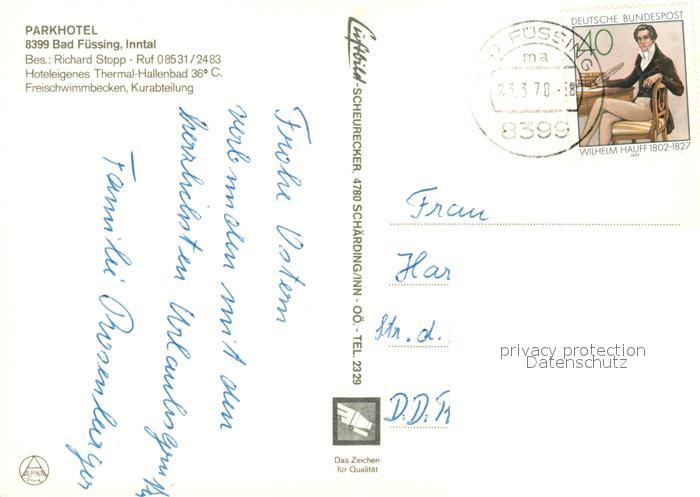 PARKHOTEL
8399 Bad Füssing, Inntal
Bes.: Richard Stopp - Ruf 08531/2483
Hoteleigenes Thermal-Hallenbad 36° C,
Freischwimmbecken, Kurabteilung
Frohe Ostern
verbunden mit den
herzlichsten Urlaubsgrüßen
Familie Rosenberger
Luftbild-SCHEURECKER, 4780 SCHÄRDING/INN - OÖ. - TEL. 2329
Das Zeichen
für Qualität
ALPINA
Druck
BAD FÜSSING
ma
23.3.78-18
8399
DEUTSCHE BUNDESPOST
40
WILHELM HAUFF 1802-1827
1977
Frau
Har
Str. d.
D.D.R
privacy protection
Datenschutz